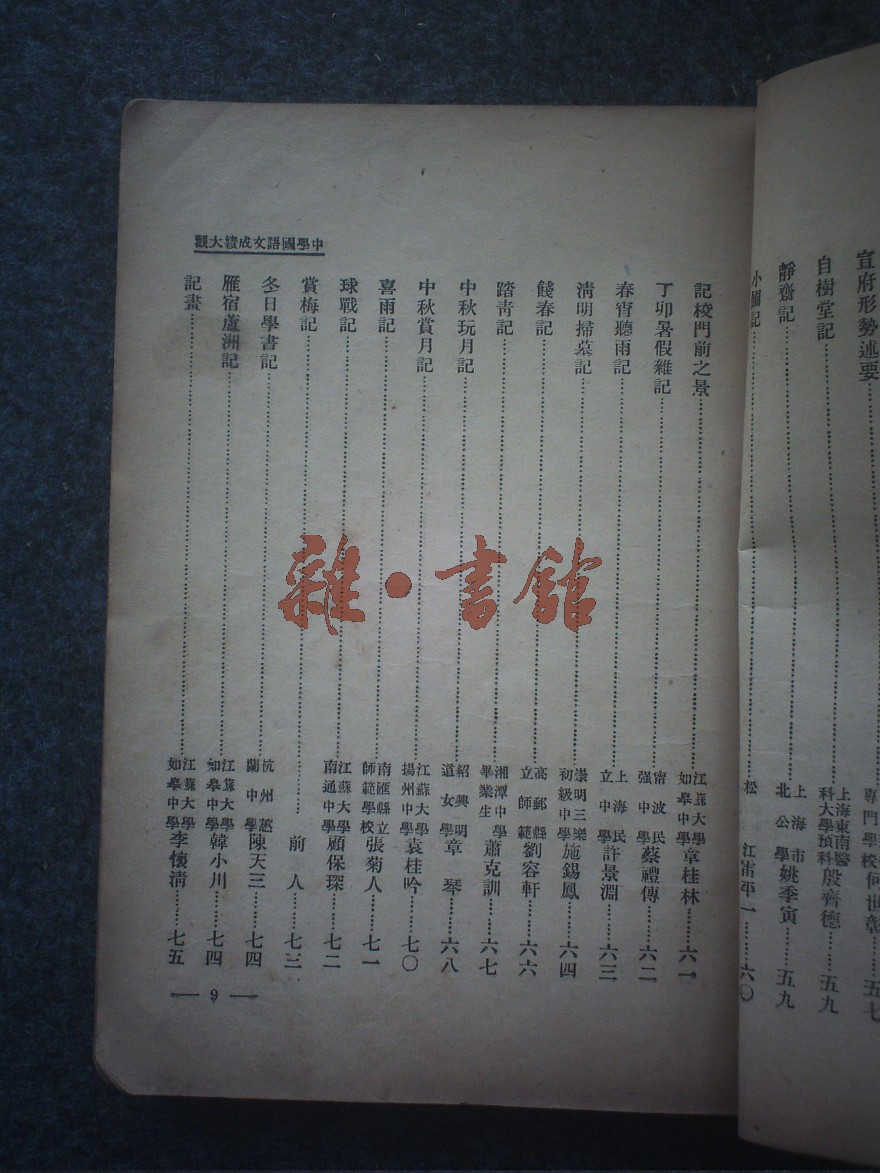 宣府形勢述要……專門學校何世彰……五七
自樹堂記……上海東南醫科大學預科殷齊德……五九
靜齋記……上海市北公學姚季寅……五九
小園記……松江雷平一……六〇
中學國語文成績大觀
記校門前之景……江蘇大學如皋中學章桂林……六一
丁卯暑假雜記……甯波民强中學蔡禮傳……六二
春宵聽雨記……上海民立中學許景淵……六三
淸明掃墓記……崇明三樂初級中學施錫鳳……六四
餞春記……高郵縣立師範劉容軒……六六
踏靑記……湘潭中學畢業生蕭克訓……六七
中秋玩月記……紹興明道女學章琴……六八
中秋賞月記……江蘇大學揚州中學袁桂吟……七〇
喜雨記……南匯縣立師範學校張菊人……七一
球戰記……江蘇大學南通中學顧保琛……七二
賞梅記……前人……七三
冬日學書記……杭州蕙蘭中學陳天三……七四
雁宿蘆洲記……江蘇大學如皋中學韓小川……七四
記畫……江蘇大學如皋中學李懷淸……七五
— 9 —
雜·書館